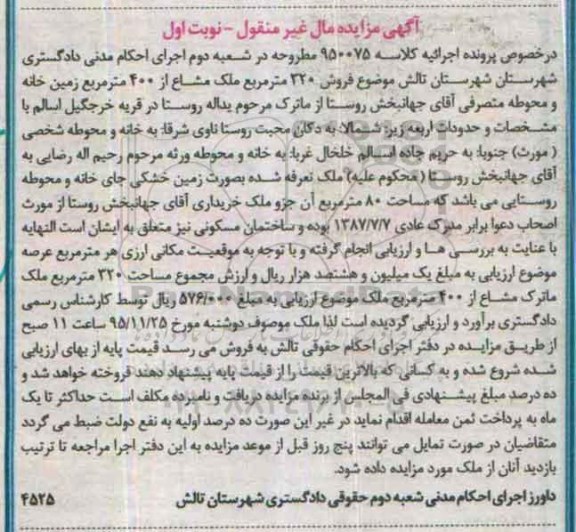 آگهی مزایده مال غیر منقول - نوبت اول
درخصوص پرونده اجرائیه کلاسه ۹۵۰۰۷۵ مطروحه در شعبه دوم اجرای احکام مدنی دادگستری
شهرستان شهرستان تالش موضوع فروش ۳۲۰ مترمربع ملک مشاع از ۴۰۰ مترمربع زمین خانه
و محوطه متصرفی آقای جهانبخش روستا از ماترک مرحوم یداله روستا در قریه خرجگیل اسالم با
مشخصات و حدودات اربعه زیر: شمالا: به دکان محبت روستا ناوی شرقا: به خانه و محوطه شخصی
( مورث) جنوبا: به حریم جاده اسالم خلخال غربا: به خانه و محوطه ورثه مرحوم رحیم اله رضایی به
آقای جهانبخش روستا ( محکوم علیه) ملک تعرفه شده بصورت زمین خشکی جای خانه و محوطه
روستایی می باشد که مساحت ۸۰ مترمربع آن جزو ملک خریداری آقای جهانبخش روستا از مورث
اصحاب دعوا برابر مدرک عادی ۱۳۸۷/۷/۷ بوده و ساختمان مسکونی نیز متعلق به ایشان است النهایه
با عنایت به بررسی ها و ارزیابی انجام گرفته و با توجه به موقعیت مکانی ارزی هر مترمربع عرصه
موضوع ارزیابی به مبلغ یک میلیون و هشتصد هزار ریال و ارزش مجموع مساحت ۳۲۰ مترمربع ملک
ماترک مشاع از ۴۰۰ مترمربع ملک موضوع ارزیابی به مبلغ ۵۷۶/۰۰۰ ریال توسط کارشناس رسمی
دادگستری برآورد و ارزیابی گردیده است لذا ملک موصوف دوشنبه مورخ ۹۵/۱۱/۲۵ ساعت ۱۱ صبح
از طریق مزایده در دفتر اجرای احکام حقوقی تالش به فروش می رسد قیمت پایه از بهای ارزیابی
شده شروع شده و به کسانی که بالاترین قیمت را از قیمت پایه پیشنهاد دهند فروخته خواهد شد و
ده درصد مبلغ پیشنهادی فی المجلس از برنده مزایده دریافت و نامبرده مکلف است حداکثر تا یک
ماه به پرداخت ثمن معامله اقدام نماید در غیر این صورت ده درصد اولیه به نفع دولت ضبط می گردد
متقاضیان در صورت تمایل می توانند پنج روز قبل از موعد مزایده به این دفتر اجرا مراجعه تا ترتیب
بازدید آنان از ملک مورد مزایده داده شود.
دادورز اجرای احکام مدنی شعبه دوم حقوقی دادگستری شهرستان تالش ۴۵۲۵